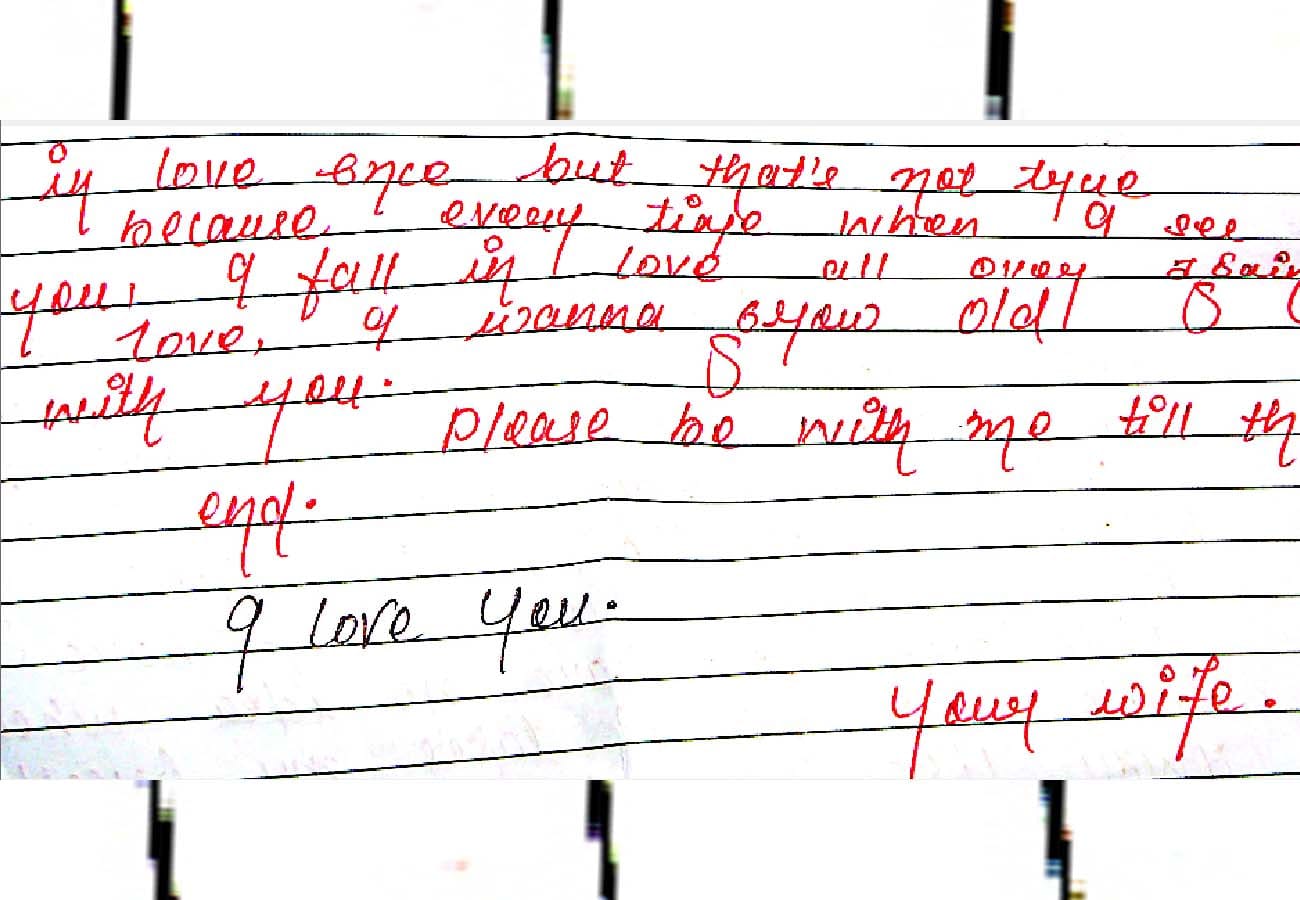 in love once but that's not true
because every time when I see
you, I fall in love all over again
love, I wanna grow old
with you.
Please be with me till th
end.
I love you.
Your wife.